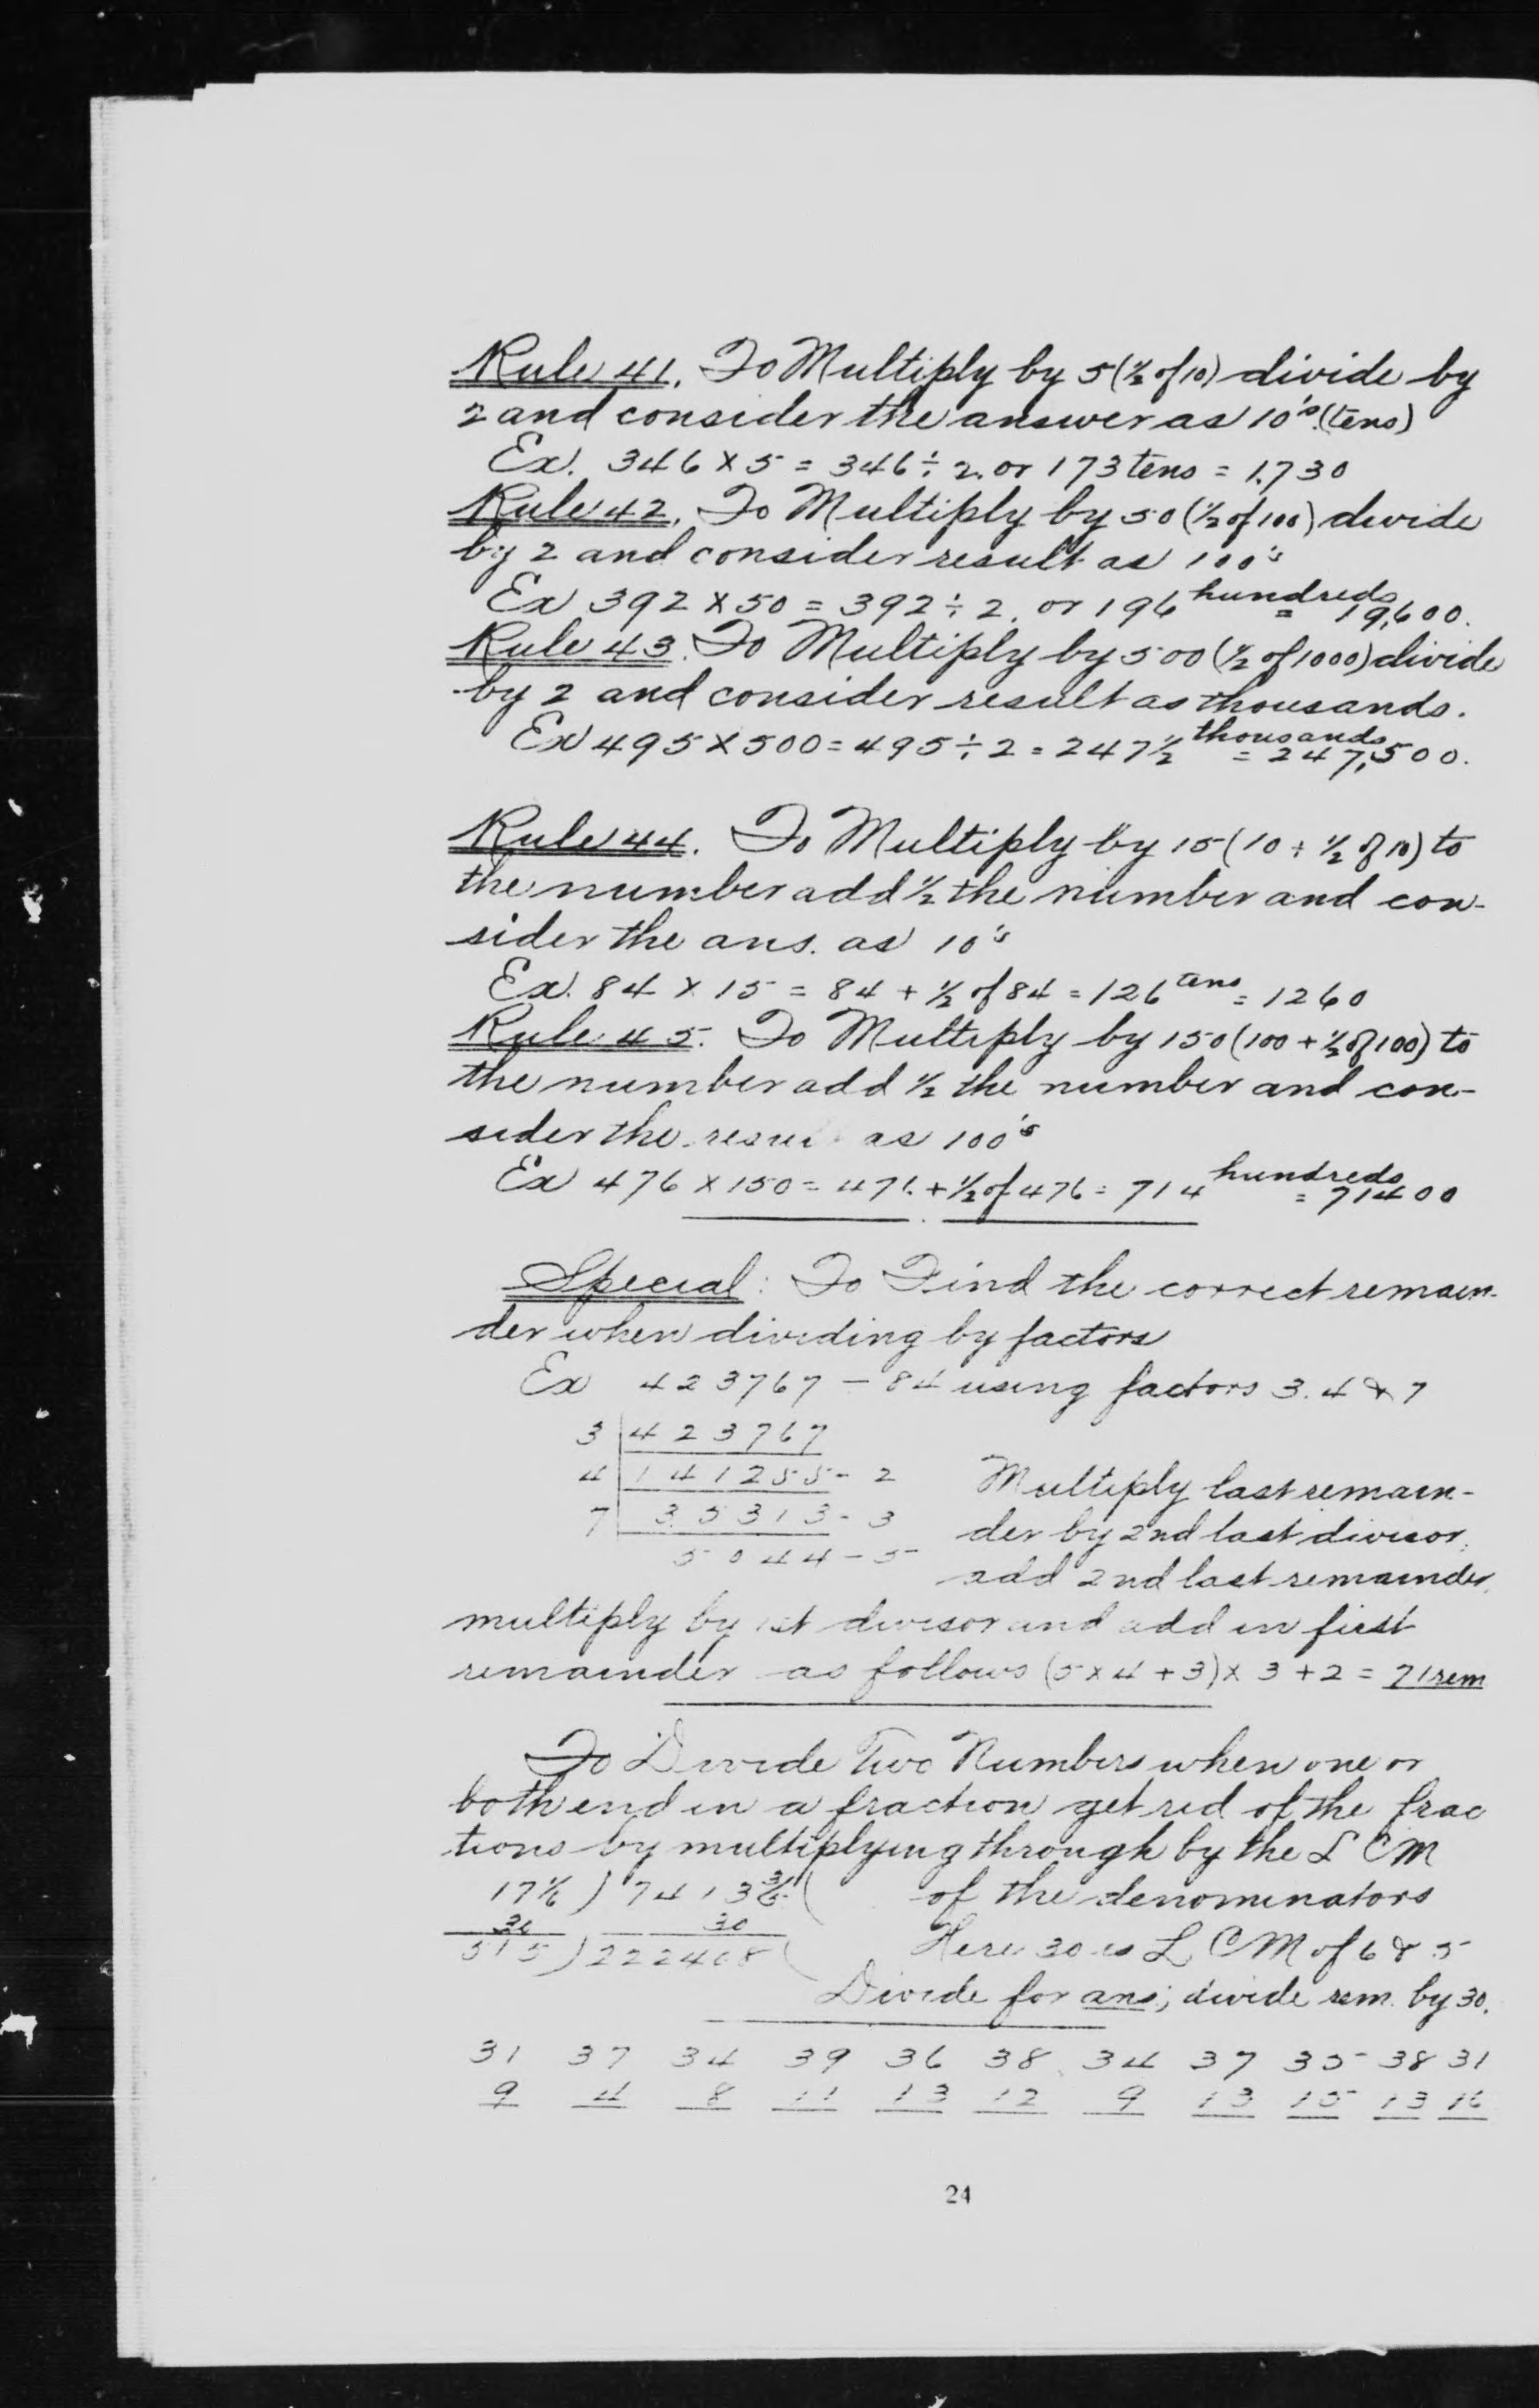 Rule 41. To Multiply by 5 (½ of 10) divide by
2 and consider the answer as 10's. (tens)
Ex. 346 × 5 = 346 ÷ 2. or 173 tens = 1,730
Rule 42. To Multiply by 50 (½ of 100) divide
by 2 and consider result as 100's
Ex 392 × 50 = 392 ÷ 2. or 196 hundreds = 19,600.
Rule 43. To Multiply by 500 (½ of 1000) divide
by 2 and consider result as thousands.
Ex 495 × 500 = 495 ÷ 2 = 247½ thousands = 247,500.
Rule 44. To Multiply by 15 (10 + ½ of 10) to
the number add ½ the number and con-
sider the ans. as 10's
Ex. 84 × 15 = 84 + ½ of 84 = 126 tens = 1260
Rule 45. To Multiply by 150 (100 + ½ of 100) to
the number add ½ the number and con-
sider the as 100's
Ex 476 × 150 = 476 + ½ of 476 = 714 hundreds = 71400
Special: To Find the correct remain-
der when dividing by factors
Ex 423767 – 84 using factors 3. 4 & 7
3 | 423767
4 | 141255 - 2 Multiply last remain-
7 | 35313 - 3 der by 2nd last divisor,
5044 - 5 add 2nd last remainder,
multiply by 1st divisor and add in first
remainder as follows (5 × 4 + 3) × 3 + 2 = 71 rem
To Divide Two Numbers when one or
both end in a fraction get rid of the frac
tions by multiplying through by the L C M
17⅙ ) 7413⅗ ( of the denominators
30 30
515 ) 222408 ( Here 30 is L C M of 6 & 5
Divide for ans; divide rem. by 30.
31 37 34 39 36 38 34 37 35 38 31
9 4 8 11 13 12 9 13 15 13 16
24